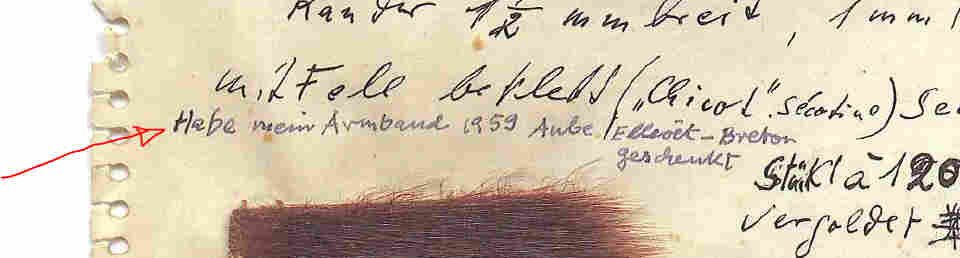 Ränder 1 1/2 mm breit, 1 mm
mit Fell beklebt („Chicot“. Sécotine) Se
Habe mein Armband 1959 Aube Elleöët-Breton
geschenkt
Stückl à 120
vergoldet #